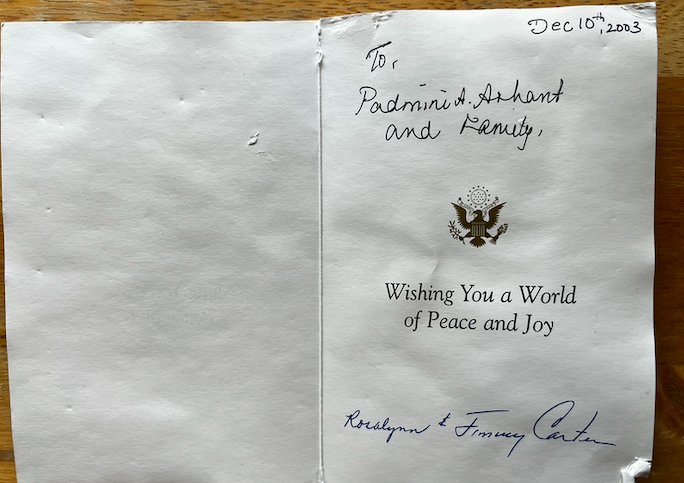 Dec 10th, 2003
To,
Padmini A. Arhant
and Family,
Wishing You a World
of Peace and Joy
Rosalynn & Jimmy Carter